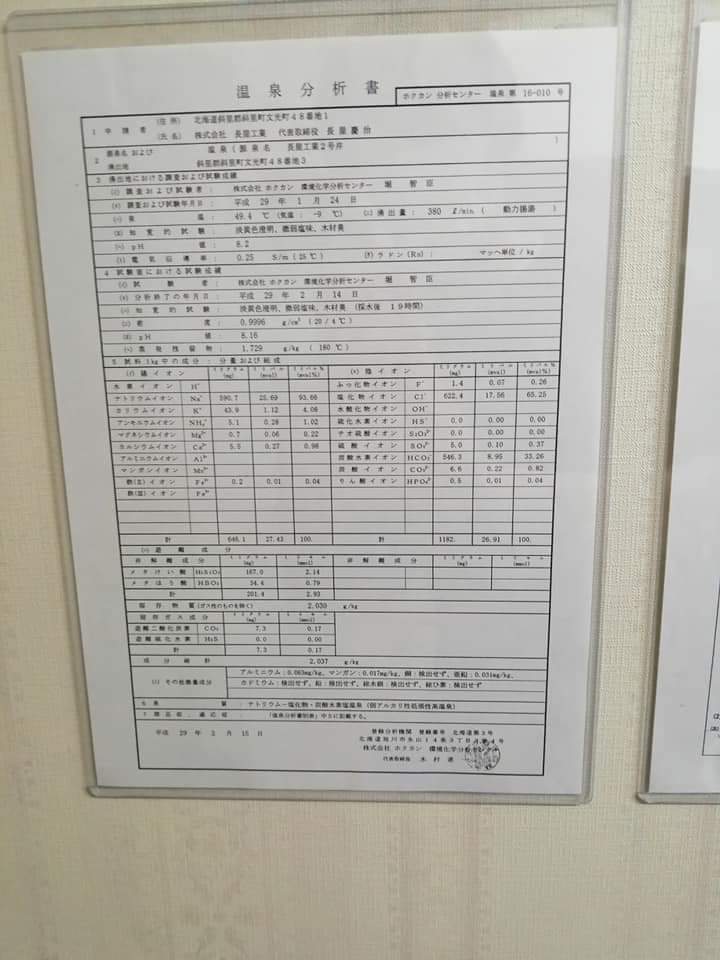 温泉分析書
ホクカン 分析センター 温泉 第 16-010 号
1 申請者 (住所) 北海道斜里郡斜里町文光町48番地1
(氏名) 株式会社 長屋工業 代表取締役 長屋慶治
2 源泉名 および 湧出地 温泉 (源泉名 長屋工業2号井)
斜里郡斜里町文光町48番地3
3 湧出地における調査および試験成績
(ｲ) 調査および試験者 : 株式会社 ホクカン 環境化学分析センター 堀 智臣
(ﾛ) 調査および試験年月日 : 平成 29 年 1 月 24 日
(ﾊ) 泉温 : 49.4 ℃ (気温 : -9 ℃) (ﾆ) 湧出量 : 380 ℓ/min ( 動力揚湯 )
(ﾎ) 知覚的試験 : 淡黄色澄明、微弱塩味、木材臭
(ﾍ) pH 値 : 8.2
(ﾄ) 電気伝導率 : 0.25 S/m (25℃) (ﾁ) ラドン(Rn) : マッヘ単位 / kg
4 試験室における試験成績
(ｲ) 試験者 : 株式会社 ホクカン 環境化学分析センター 堀 智臣
(ﾛ) 分析終了の年月日 : 平成 29 年 2 月 14 日
(ﾊ) 知覚的試験 : 淡黄色澄明、微弱塩味、木材臭 (採水後 19時間)
(ﾆ) 密度 : 0.9996 g/cm³ (20/4℃)
(ﾎ) pH 値 : 8.16
(ﾍ) 蒸発性残留物 : 1.729 g/kg (180℃)
5 試料1kg中の成分 : 分量および組成
(ｲ) 陽イオン ミリグラム (mg) ミリバル (mval) ミリバル% (mval%)
水素イオン H⁺
ナトリウムイオン Na⁺ 590.7 25.69 93.66
カリウムイオン K⁺ 43.9 1.12 4.08
アンモニウムイオン NH₄⁺ 5.1 0.28 1.02
マグネシウムイオン Mg²⁺ 0.7 0.06 0.22
カルシウムイオン Ca²⁺ 5.5 0.27 0.98
アルミニウムイオン Al³⁺
マンガンイオン Mn²⁺
鉄(Ⅱ)イオン Fe²⁺ 0.2 0.01 0.04
鉄(Ⅲ)イオン Fe³⁺
計 646.1 27.43 100.
(ﾛ) 陰イオン ミリグラム (mg) ミリバル (mval) ミリバル% (mval%)
ふっ化物イオン F⁻ 1.4 0.07 0.26
塩化物イオン Cl⁻ 622.4 17.56 65.25
水酸化物イオン OH⁻
硫化水素イオン HS⁻ 0.0 0.00 0.00
チオ硫酸イオン S₂O₃²⁻ 0.0 0.00 0.00
硫酸イオン SO₄²⁻ 5.0 0.10 0.37
炭酸水素イオン HCO₃⁻ 546.3 8.95 33.26
炭酸イオン CO₃²⁻ 6.6 0.22 0.82
りん酸イオン HPO₄²⁻ 0.5 0.01 0.04
計 1182. 26.91 100.
(ﾊ) 遊離成分
非解離成分 ミリグラム (mg) ミリモル (mmol) 非解離成分 ミリグラム (mg) ミリモル (mmol)
メタけい酸 H₂SiO₃ 167.0 2.14
メタほう酸 HBO₂ 34.4 0.79
計 201.4 2.93
溶存物質(ガス性のものを除く) 2.030 g/kg
溶存ガス成分 ミリグラム (mg) ミリモル (mmol)
遊離二酸化炭素 CO₂ 7.3 0.17
遊離硫化水素 H₂S 0.0 0.00
計 7.3 0.17
成分総計 2.037 g/kg
(ﾆ) その他微量成分 アルミニウム:0.063mg/kg、マンガン:0.017mg/kg、銅:検出せず、亜鉛:0.031mg/kg、
カドミウム:検出せず、鉛:検出せず、総水銀:検出せず、総ひ素:検出せず
6 泉質 : ナトリウム－塩化物・炭酸水素塩温泉 (弱アルカリ性低張性高温泉)
7 禁忌症・適応症 : 「温泉分析書別表」中5に記載する。
平成 29 年 2 月 15 日
登録分析機関 登録番号 北海道第3号
北海道旭川市永山14条3丁目4号
株式会社 ホクカン 環境化学分析センター
代表取締役 木村